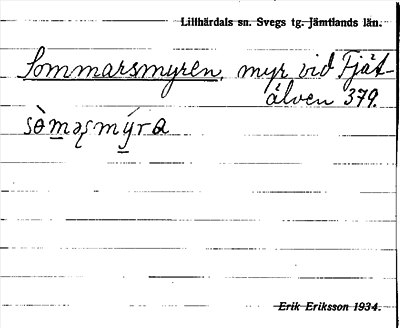 Lillhärdals sn. Svegs tg. Jämtlands län.
Sommarsmyren, myr vid Fjät-
älven 379.
sòməʂmýra
Erik Eriksson 1934.